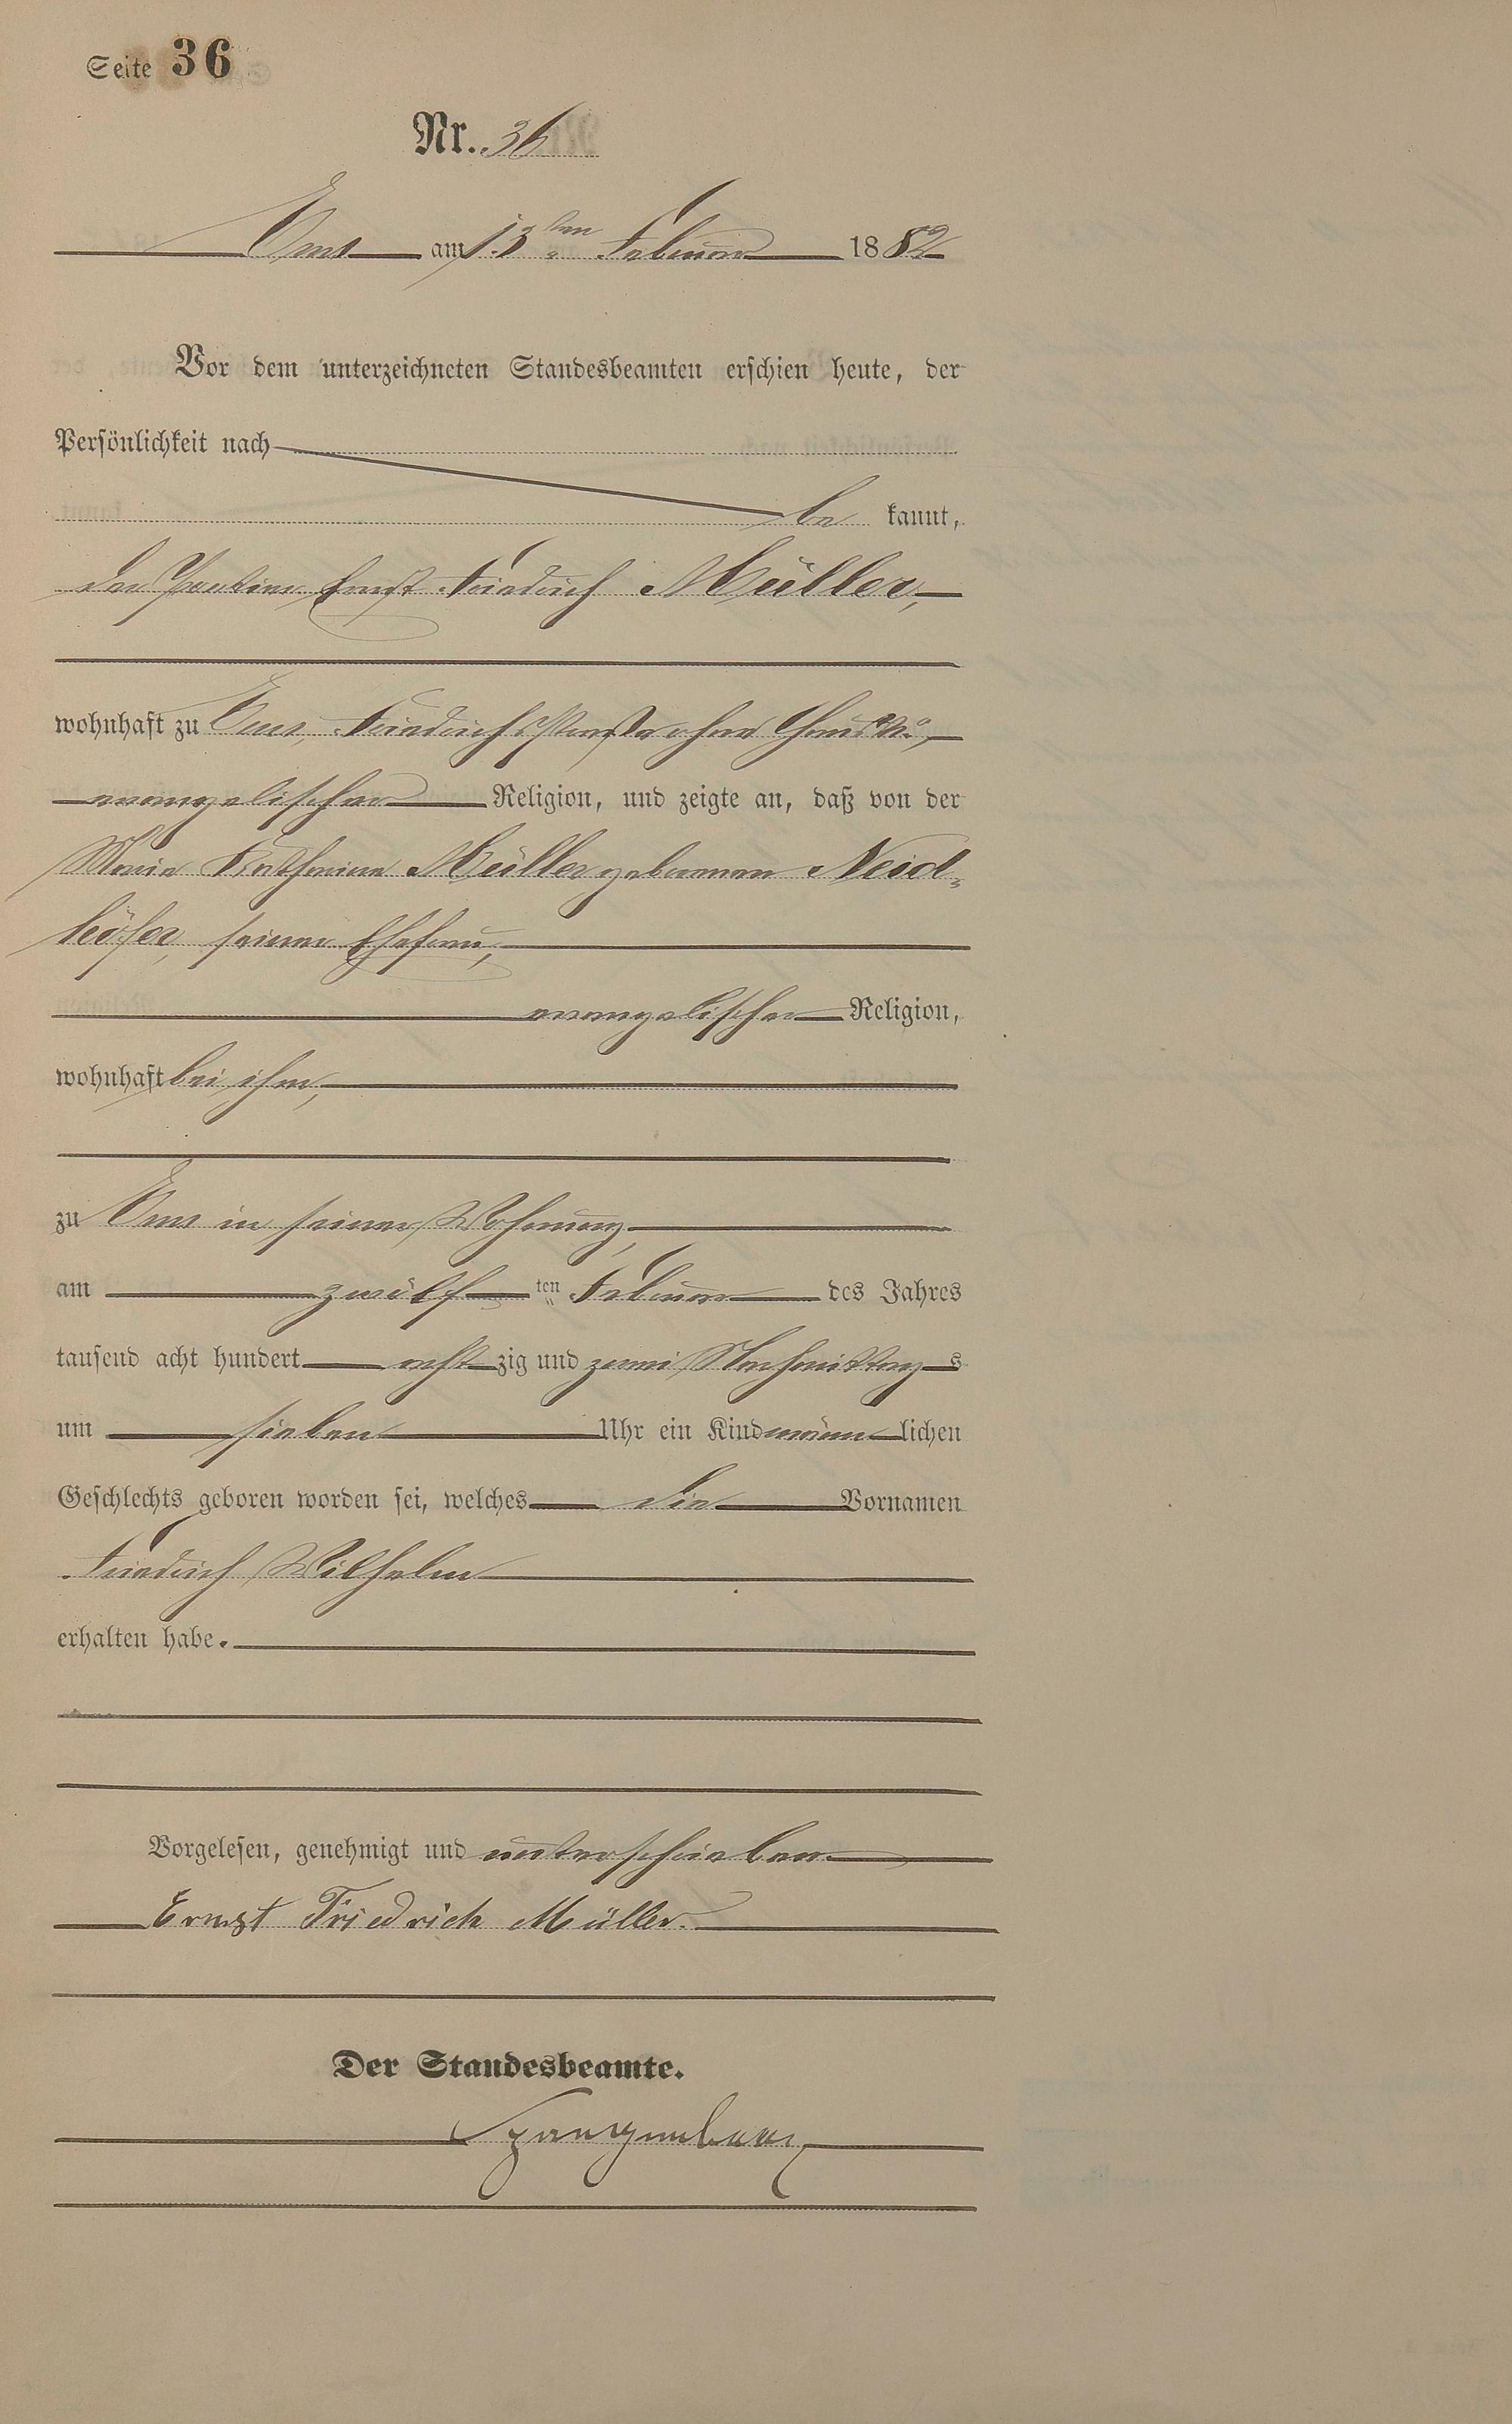 Seite 36
Nr. 36
Ems am 13ten Februar 1882
Vor dem unterzeichneten Standesbeamten erschien heute, der
Persönlichkeit nach
be kannt,
der Portier Ernst Friedrich Müller,
wohnhaft zu Ems, Friedrichsstraße ohne Haus №,
evangelischer Religion, und zeigte an, daß von der
Maria Katharina Müller geborenen Neid-
höfer, seiner Ehefrau,
evangelischer Religion,
wohnhaft bei ihm,
zu Ems in seiner Wohnung,
am zwölften Februar des Jahres
tausend acht hundert achtzig und zwei Nachmittags
um sieben Uhr ein Kind männlichen
Geschlechts geboren worden sei, welches die Vornamen
Friedrich Wilhelm
erhalten habe.
Vorgelesen, genehmigt und unterschrieben.
Ernst Friedrich Müller.
Der Standesbeamte.
Spangenberg